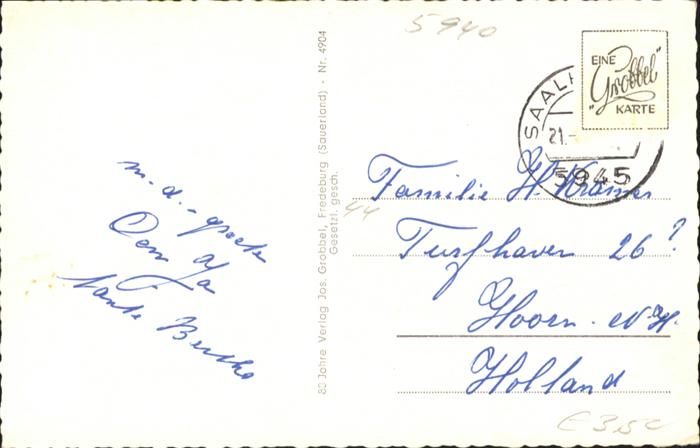 5940
EINE
"Grobbel"
KARTE
SAALH
21.-
5945
80 Jahre Verlag Jos. Grobbel, Fredeburg (Sauerland) - Nr. 4904
Gesetzl. gesch.
44
m.-d.-groete
Oom
tante Bertha
Familie H. Kramer
Turfhaven 26?
Hoorn. N.H.
Holland